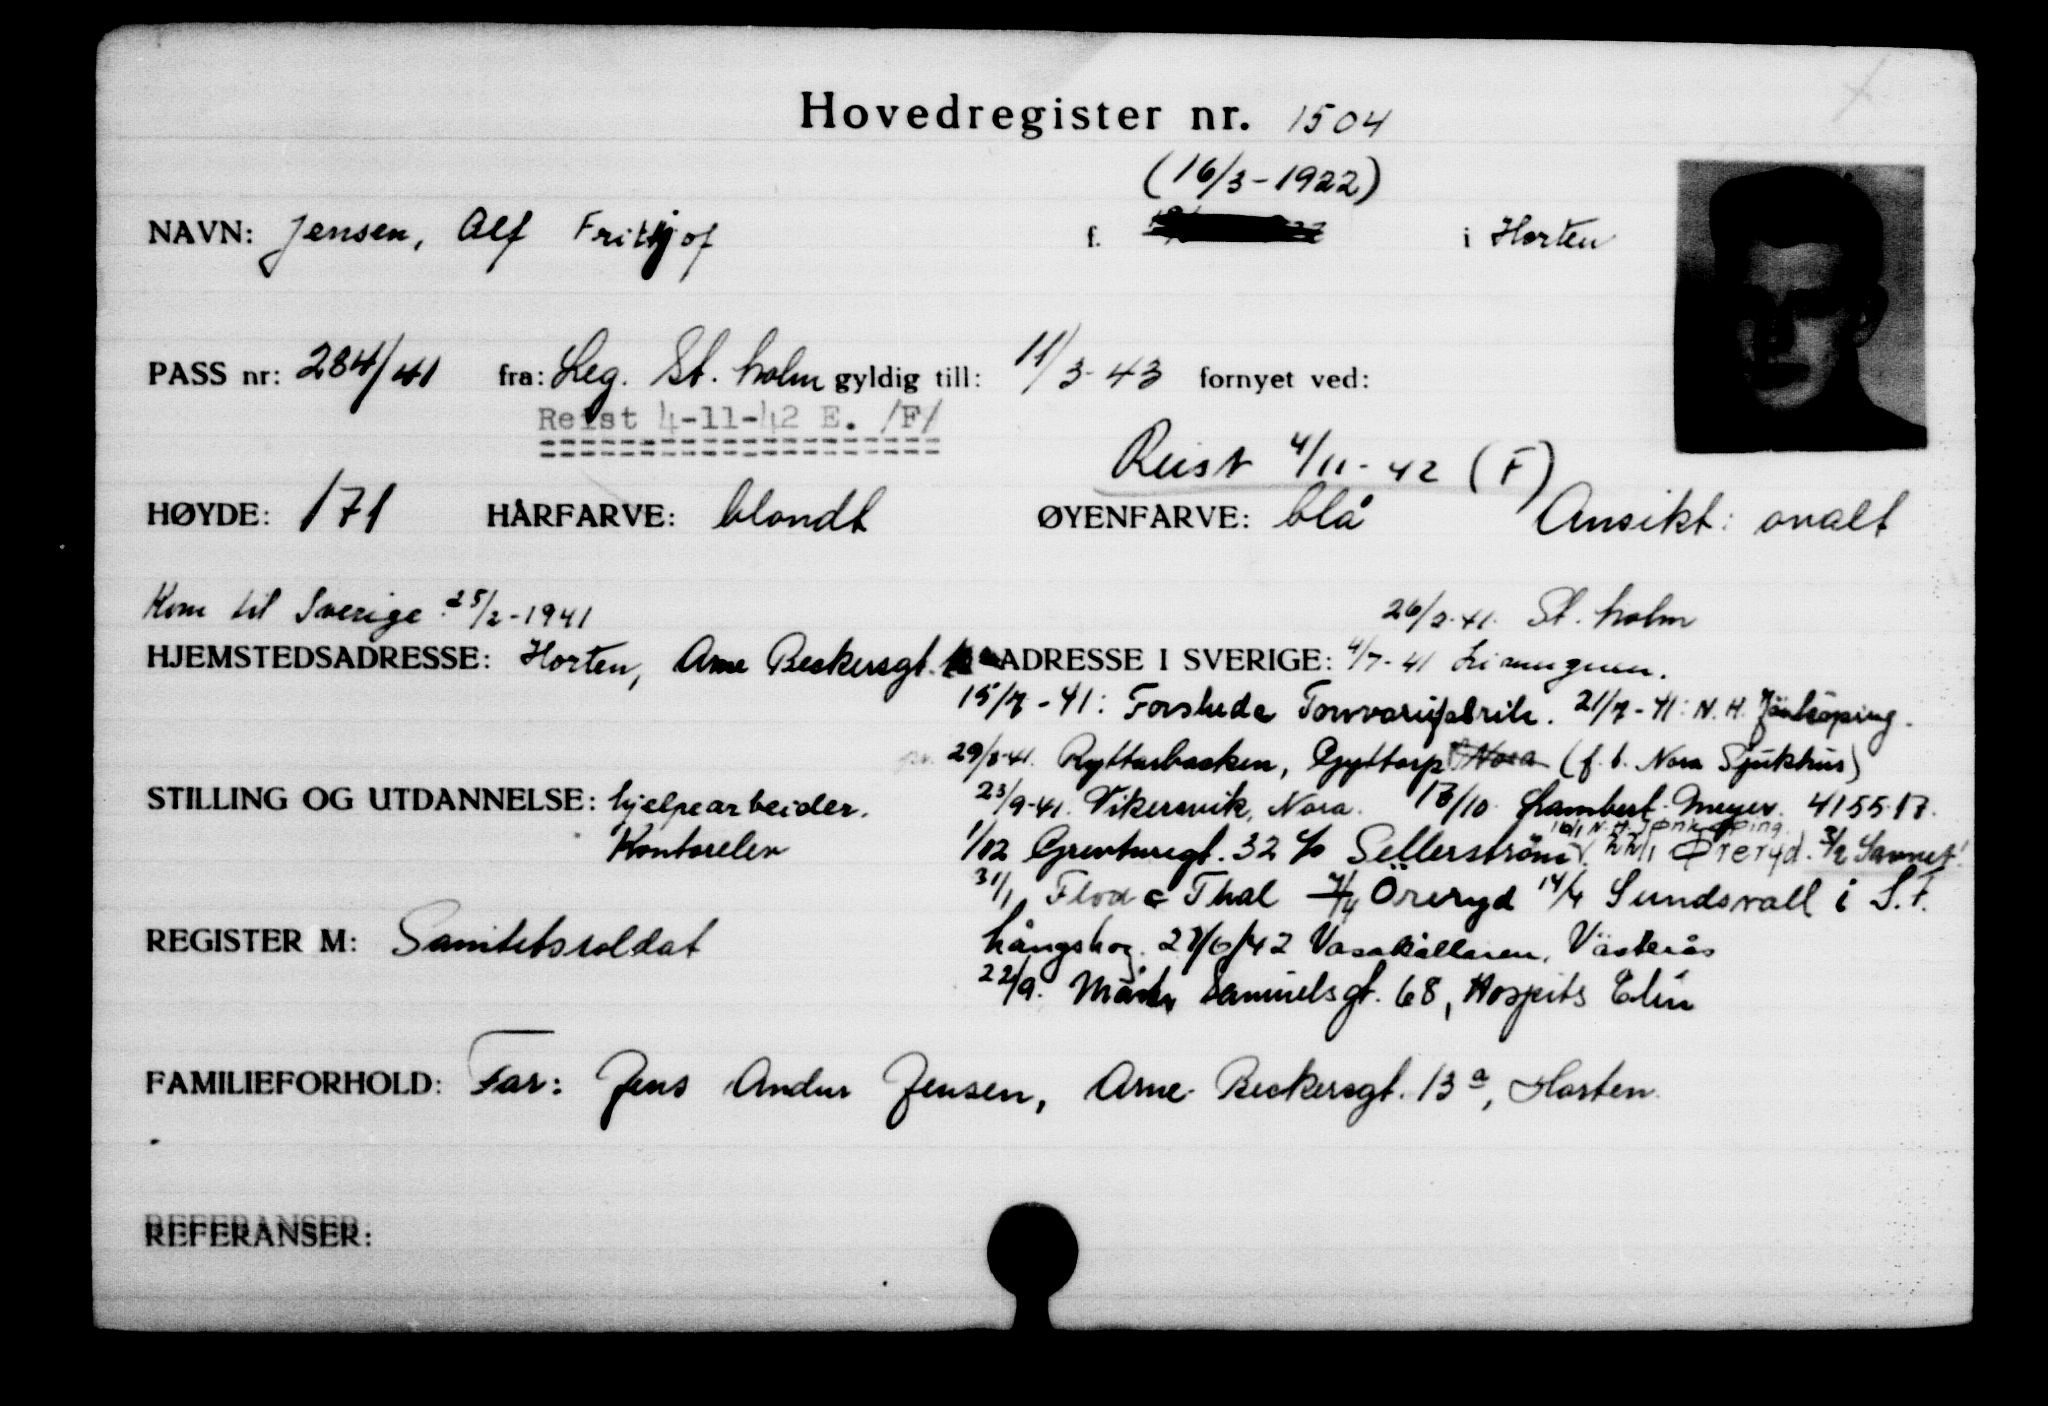 Hovedregister nr. 1504
(16/3-1922)
NAVN: Jensen, Alf Frithjof f. i Horten
PASS nr: 284/41 fra: Leg. St. holm gyldig till: 11/3-43 fornyet ved:
Reist 4-11-42 E. /F/
Reist 4/11-42 (F)
HØYDE: 171 HÅRFARVE: blondt ØYENFARVE: blå Ansikt: ovalt
Kom til Sverige 25/2-1941
26/2-41. St. holm
HJEMSTEDSADRESSE: Horten, Arne Beckersgt.
ADRESSE I SVERIGE: 4/7-41
15/7-41: Forsheda 21/7-41: N. H. Jönköping.
29/8-41. Ryttarbacken, Gyttorp Nora (f. b. Nora Sjukhus)
STILLING OG UTDANNELSE: hjelpearbeider.
Kontorelev
23/9-41. Vikersvik, Nora. 13/10 Lambert-Meyer. 415517.
16/1 N. H. Jönköping.
1/12 Grevturegt. 32 c/o Sellerström 22/1 Øreryd. 3/2
31/1 Flod c Thal Öreryd 14/4 Sundsvall i S. F.
REGISTER M: Sanitetssoldat
Långskog. 27/6/42 Vasakällaren, Västerås
22/9. Mäster Samuelsgt. 68, Hospits Elin
FAMILIEFORHOLD: Far: Jens Andur Jensen, Arne Beckersgt. 13 a, Horten.
REFERANSER: